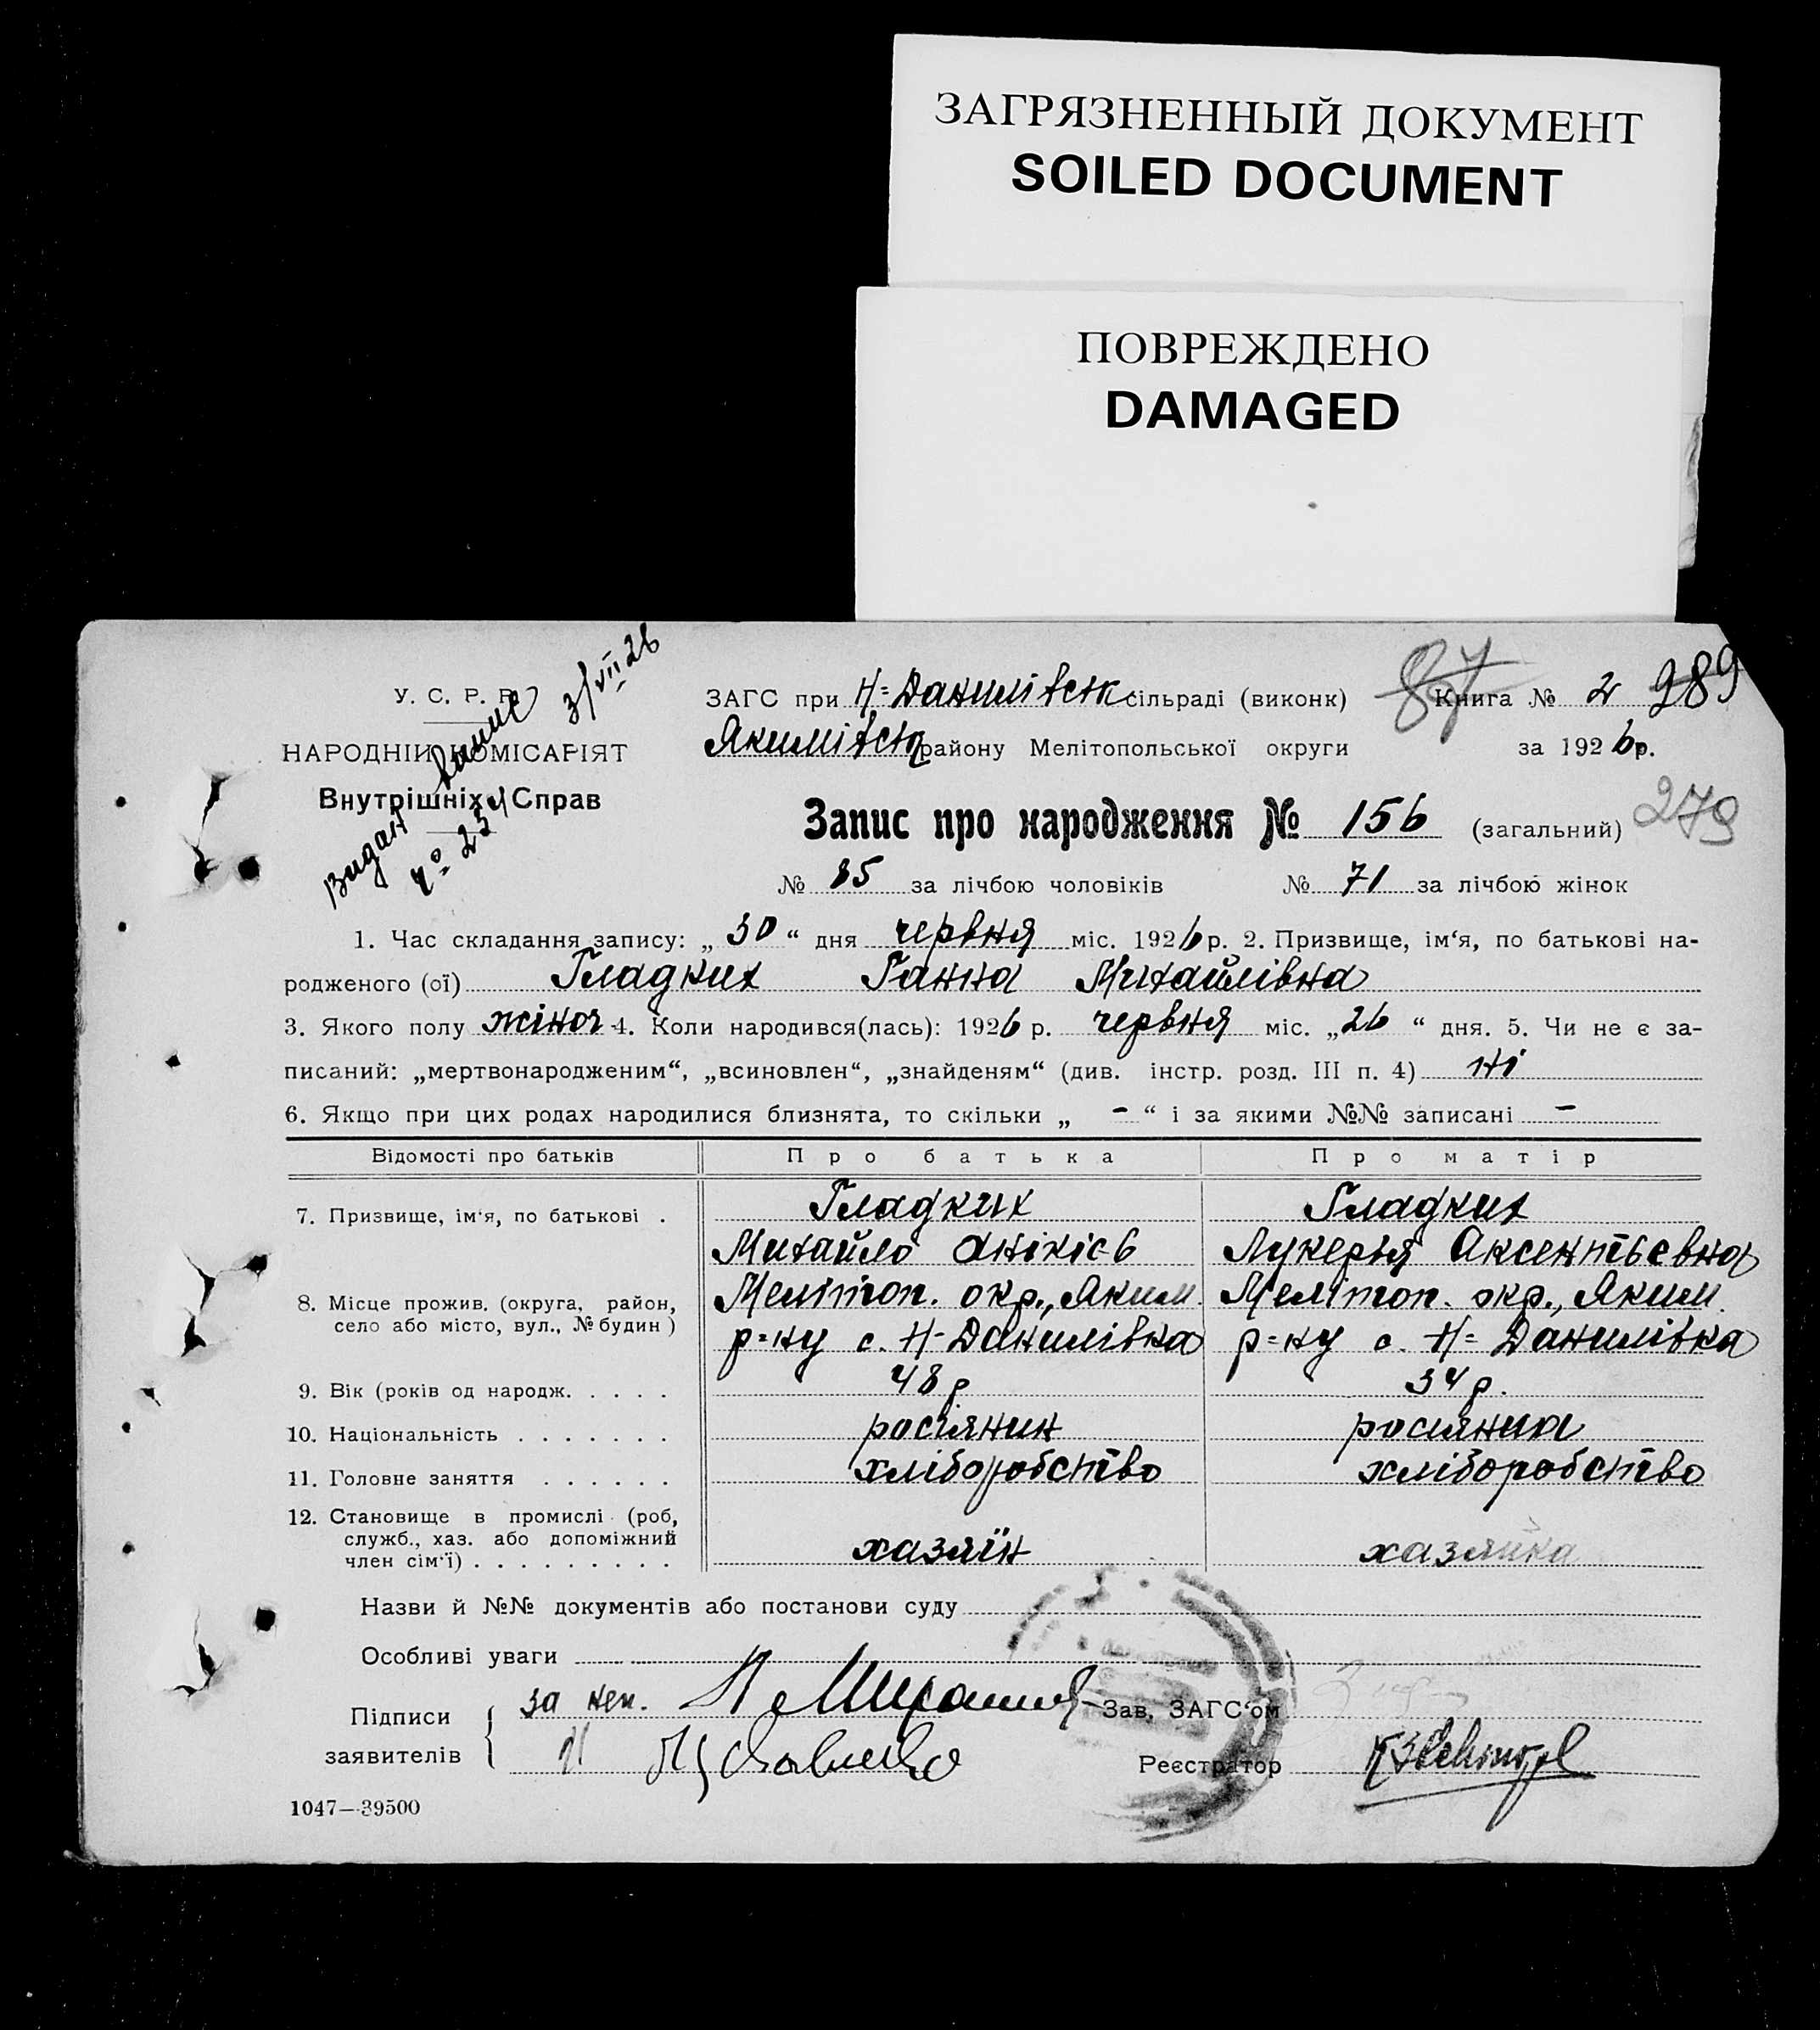 ЗАГРЯЗНЕННЫЙ ДОКУМЕНТ
SOILED DOCUMENT
ПОВРЕЖДЕНО
DAMAGED
У. С. Р. Р.
НАРОДНІЙ КОМІСАРІЯТ
Внутрішніх Справ
Видан
3/VII 26
ЗАГС при Н=Данилівськ сільраді (виконк) Книга № 2 989
87
Якимівськ району Мелітопольської округи за 1926 р.
Запис про народження № 156 (загальний) 279
№ 85 за лічбою чоловіків № 71 за лічбою жінок
1. Час складання запису: „ 30 “ дня червня міс. 1926 р. 2. Призвище, ім‘я, по батькові на-
родженого (ої) Гладких Ганна Михайлівна
3. Якого полу жіноч 4. Коли народився(лась): 1926 р. червня міс. „26 “ дня. 5. Чи не є за-
писаний: „мертвонародженим“, „всиновлен“, „знайденям“ (див. інстр. розд. III п. 4) ні
6. Якщо при цих родах народилися близнята, то скільки „ - “ і за якими №№ записані -
Відомості про батьків Про батька Про матір
7. Призвище, ім‘я, по батькові . Гладких Гладких
Михайло Лукерья Аксентьевна
8. Місце прожив. (округа, район, Меліт​оп. окр., Яким. Мелітоп. окр., Яким.
село або місто, вул., № будин ) р=ну с. Н-Данилівка р=ну с. Н=Данилівка
9. Вік (років од народж. . . . . 48 р 34 р.
10. Національність . . . . . . . росіянин росіянка
11. Головне заняття . . . . . . хліборобство хліборобство
12. Становище в промислі (роб,
служб., хаз. або допоміжний хазяїн хазяйка
член сім‘ї) . . . . . . . . .
Назви й №№ документів або постанови суду
Особливі уваги
Підписи за неп. Зав. ЗАГС‘ом
заявителів Реєстратор
1047—39500